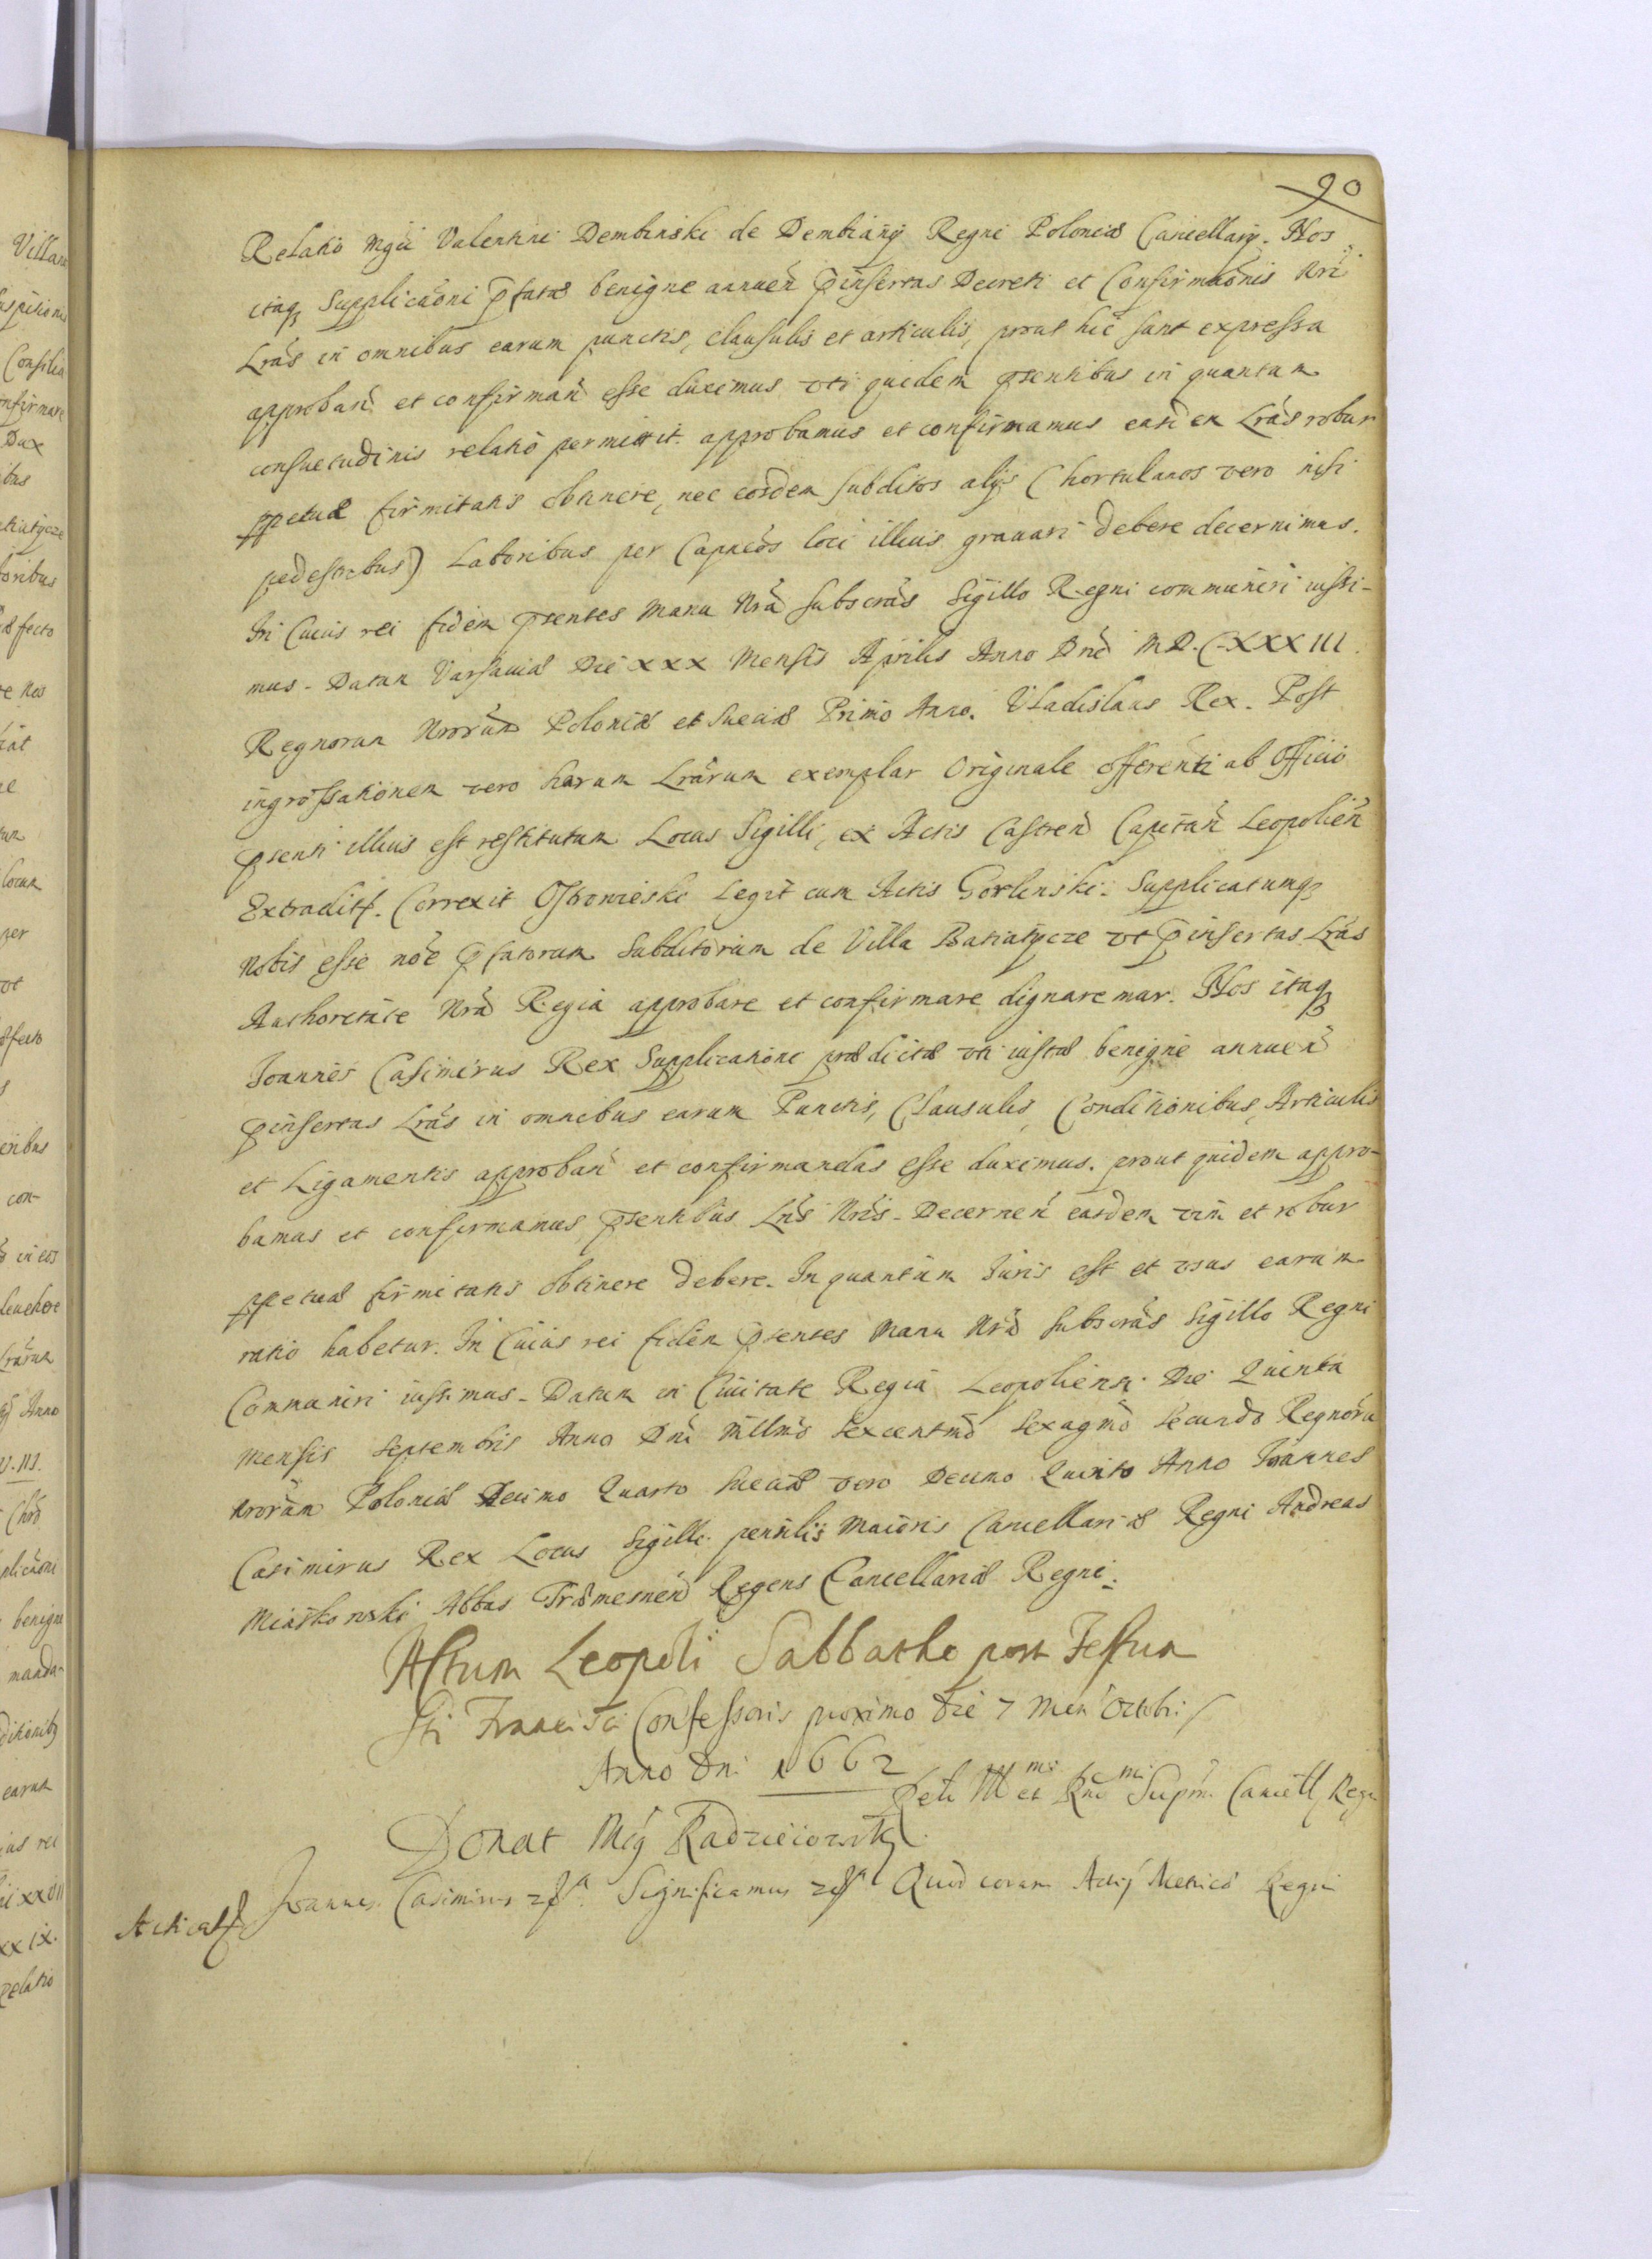 90
Relatio Mgci Valentini Dembinski de Dembiany Regni Poloniæ Cancellarÿ. Nos
itaq supplicãoni pfatæ benigne annueñ pinsertas Decreti et Confirmãonis Nrĩ
Lrãs in omnibus earum punctis, clausulis et articulis, prout hic sunt expressa
approbañ et confirmañ esse duximus uti quidem pñtibus in quantum
consuetudinis relatio permittit approbamus et confirmamus easdem Lrãs robur
ppetuæ firmitatis obtinere, nec eosdem subditos alÿs (hortulanos vero nisi
pedestribus) Laboribus per Capñeos loci illius gravari debere decernimus.
In Cuius rei fidem psentes Manu Nrã subscrãs Sigillo Regni communiri iussi-
mus. Datum Varsaviæ Die XXX Mensis Aprilis Anno Dnĩ MD.C.XXXIII.
Regnorum Nrorum Poloniæ et Sueciæ Primo Anno. Uladislaus Rex. Post
ingrossationem vero harum Lrãrum exemplar Originale offerenti ab Officio
psenti illius est restitutum Locus Sigilli, ex Actis Castreñ Capitañ Leopolieñ
Extradit. Correxit Ostrowieski Legit cum Actis Gorlinski. Supplicatumq
Nobis esse noe pfatorum Subditorum de Villa Batiatycze ut pinsertas Lrãs
Authoritate Nrã Regia approbare et confirmare dignaremur. Nos itaq
Joannes Casimirus Rex Supplicationi prædictæ uti iustæ benigne annueñ
pinsertas Lrãs in omnibus earum Punctis, Clausulis, Conditionibus, Articulis
et Ligamentis approbañ et confirmandas esse duximus. prout quidem appro-
bamus et confirmamus psentibus Lrĩs Nrĩs. Decerneñ easdem vim et robur
ppetuæ firmitatis obtinere debere. In quantum Juris est et usus earum
ratio habetur. In Cuius rei fidem psentes Manu Nrã subscrãs Sigillo Regni
Communiri iussimus. Datum in Civitate Regia Leopoliensi Die Quinta
Mensis Septembris Anno Dnĩ Millmo Sexcentmo Sexagmo Secundo Regnorũ
Nrorum Poloniæ Decimo Quarto Sueciæ vero Decimo Quinto Anno Joannes
Casimirus Rex Locus Sigilli pensilis Maioris Cancellariæ Regni Andreas
Miaskowski Abbas Træmesneñ Regens Cancellariæ Regni.
Actum Leopoli Sabbatho post Festum
Sti Francisci Confessoris proximo Die 7 Men Octobri
Anno Dni 1662
Rel. Illmi et Rndmi Supmi Cancell Regni
Donat Mcy Radzieiowsk
Acticat Joannes Casimirus Significamus Quod coram Actis Metrices Regni